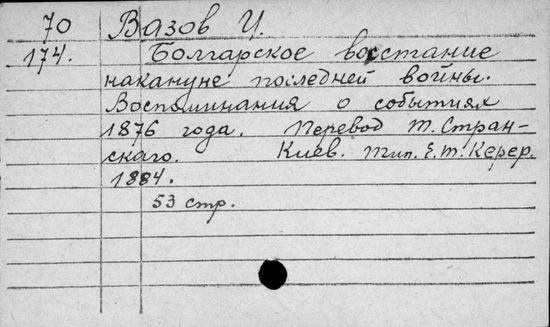 70 Вазов И.
174. Болгарское восстание
накануне последней войны.
Воспоминания о событиях
1876 года. Перевод Т. Стран-
скаго. Киев. Тип. Е.Т. Керер.
1884.
53 стр.